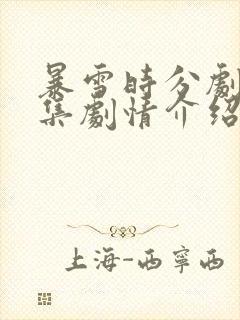 暴雪時分劇
集劇情介紹
上海-西寧西